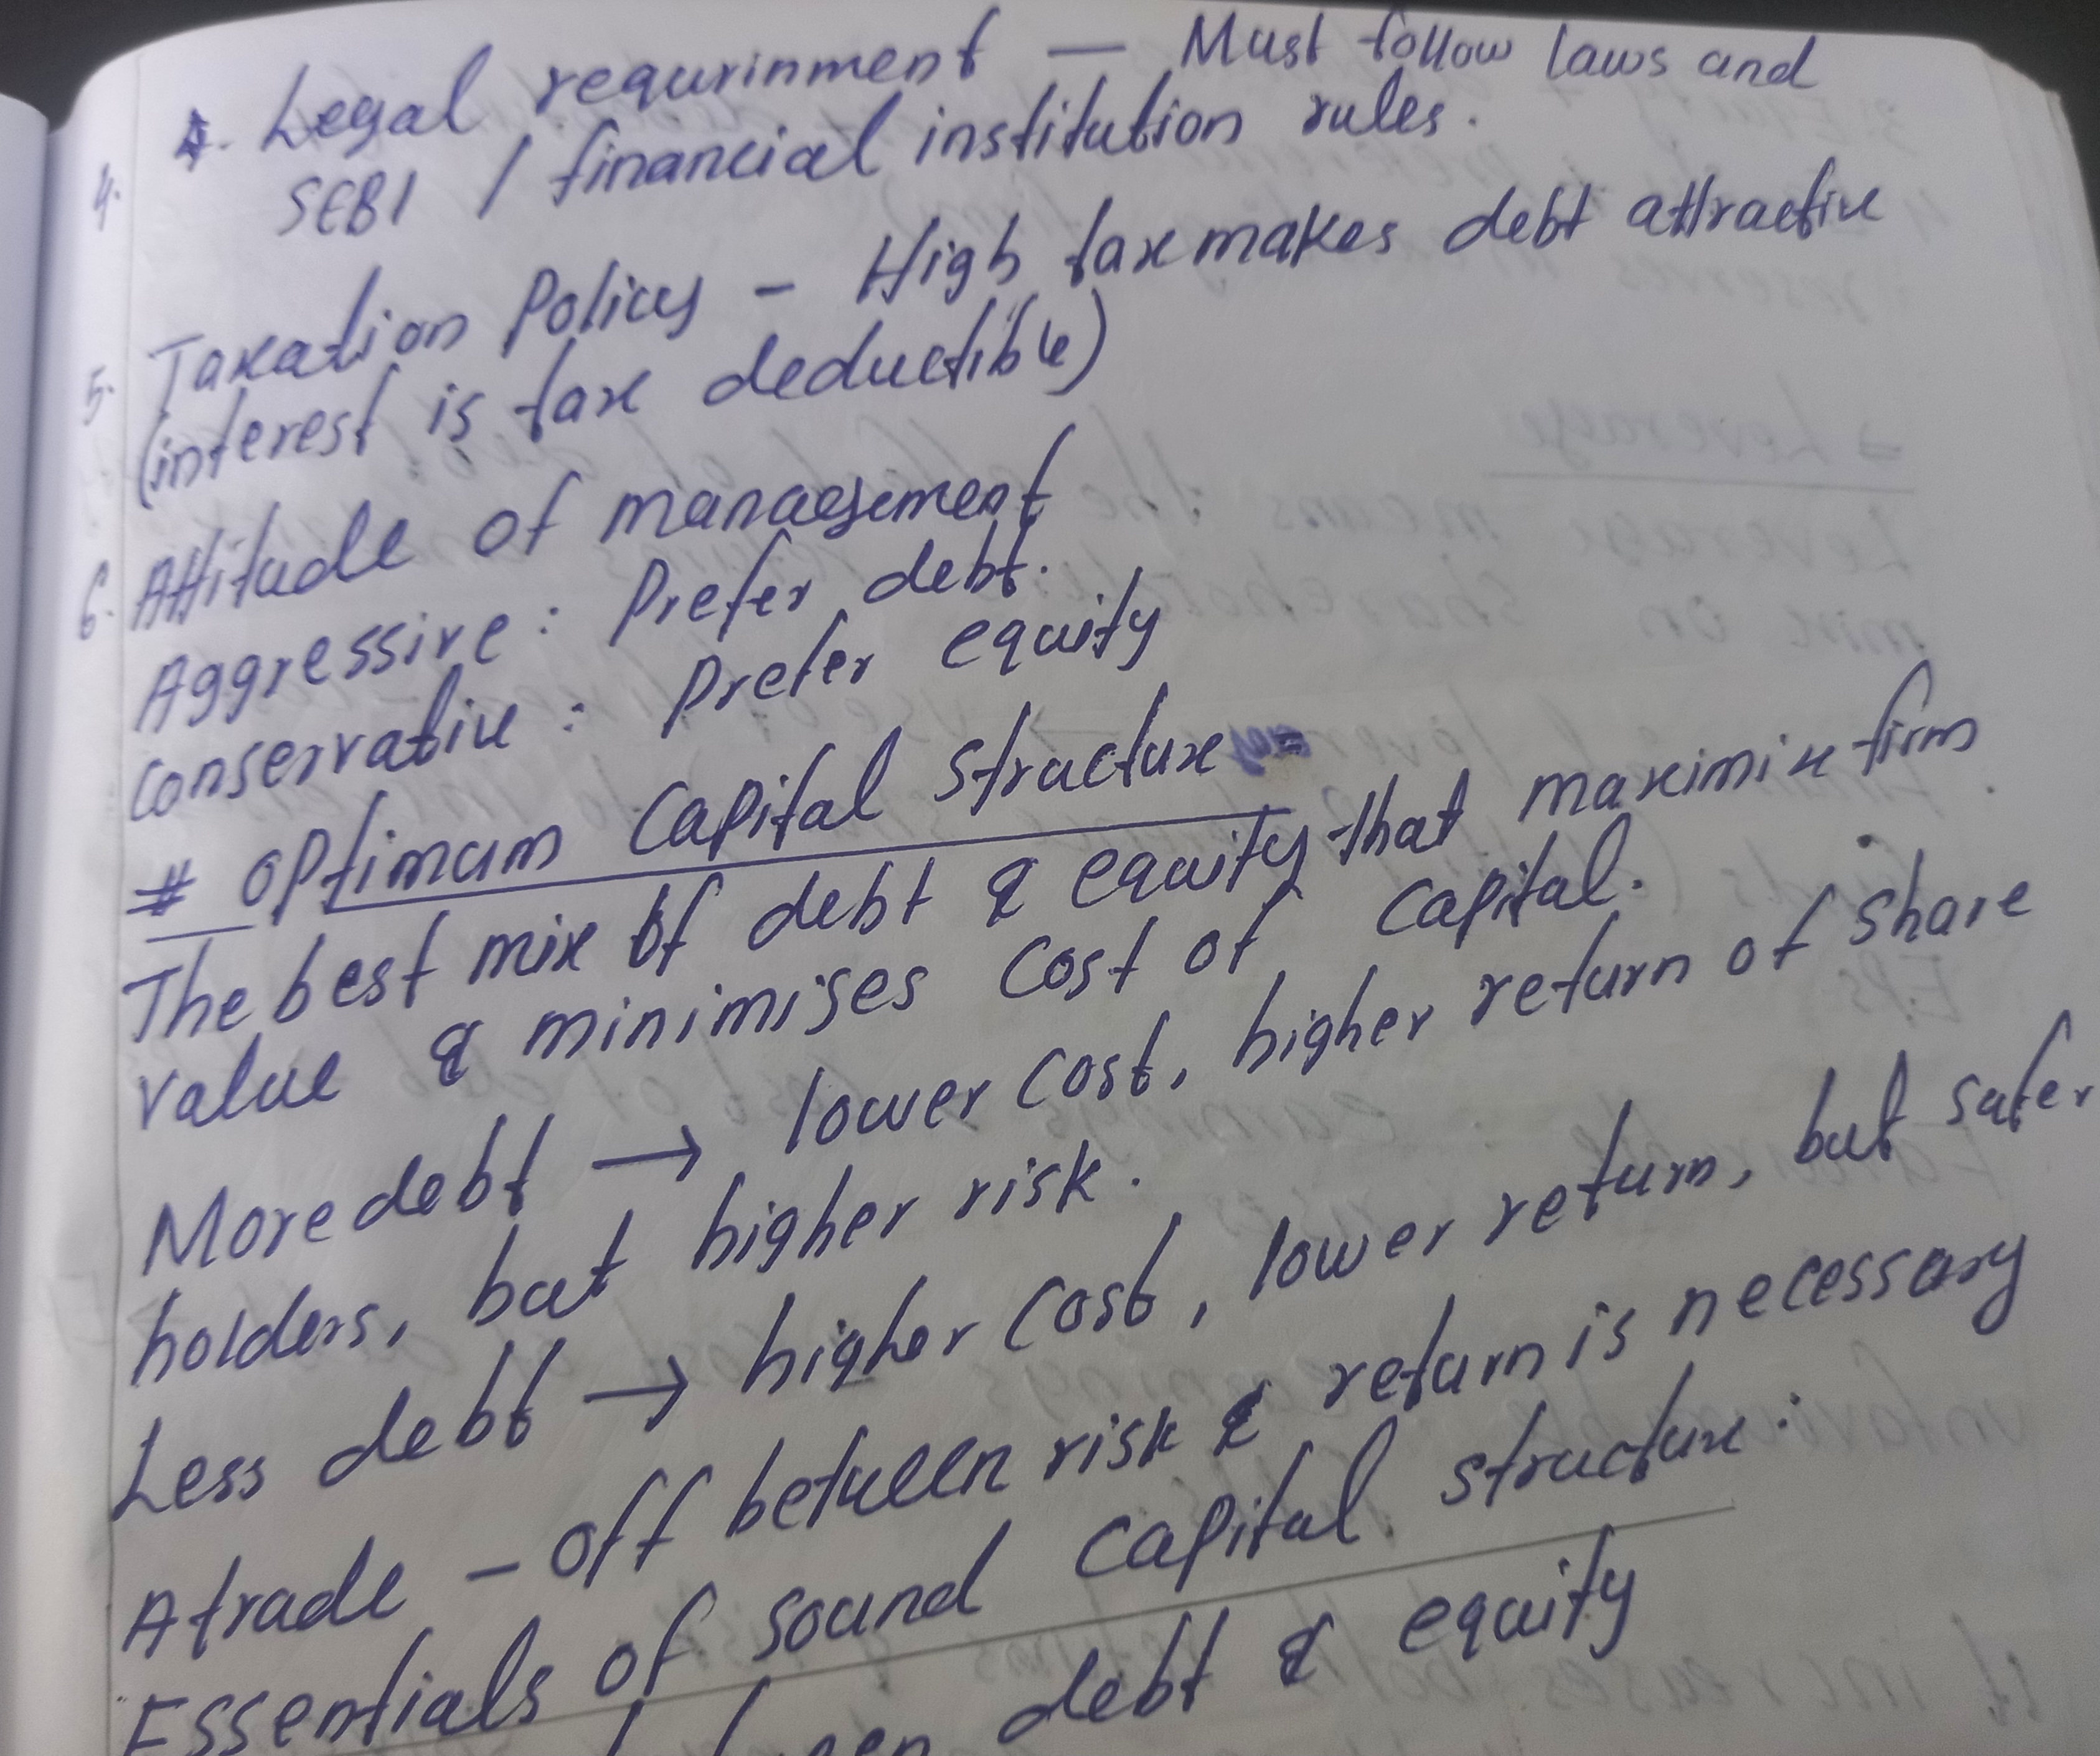 4. Legal requrinment — Must follow laws and
SEBI / financial institution rules.
5. Taxation Policy - High tax makes debt attractive
(interest is tax deductible)
6. Attitude of management
Aggressive : Prefer debt.
Conservative : Prefer equity
# Optimum Capital Structure -
The best mix of debt & equity that maximize firm
value & minimises cost of capital.
More debt → lower cost, higher return of share
holders, but higher risk.
Less debt → higher cost, lower return, but safer
A trade - off between risk & return is necessary
Essentials of sound capital structure.
debt & equity